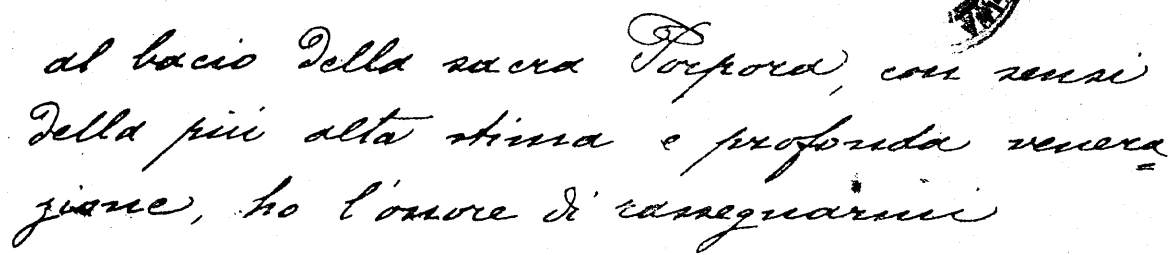 al bacio della sacra Porpora, con sensi
della più alta stima e profonda venera=
zione, ho l'onore di rassegnarmi